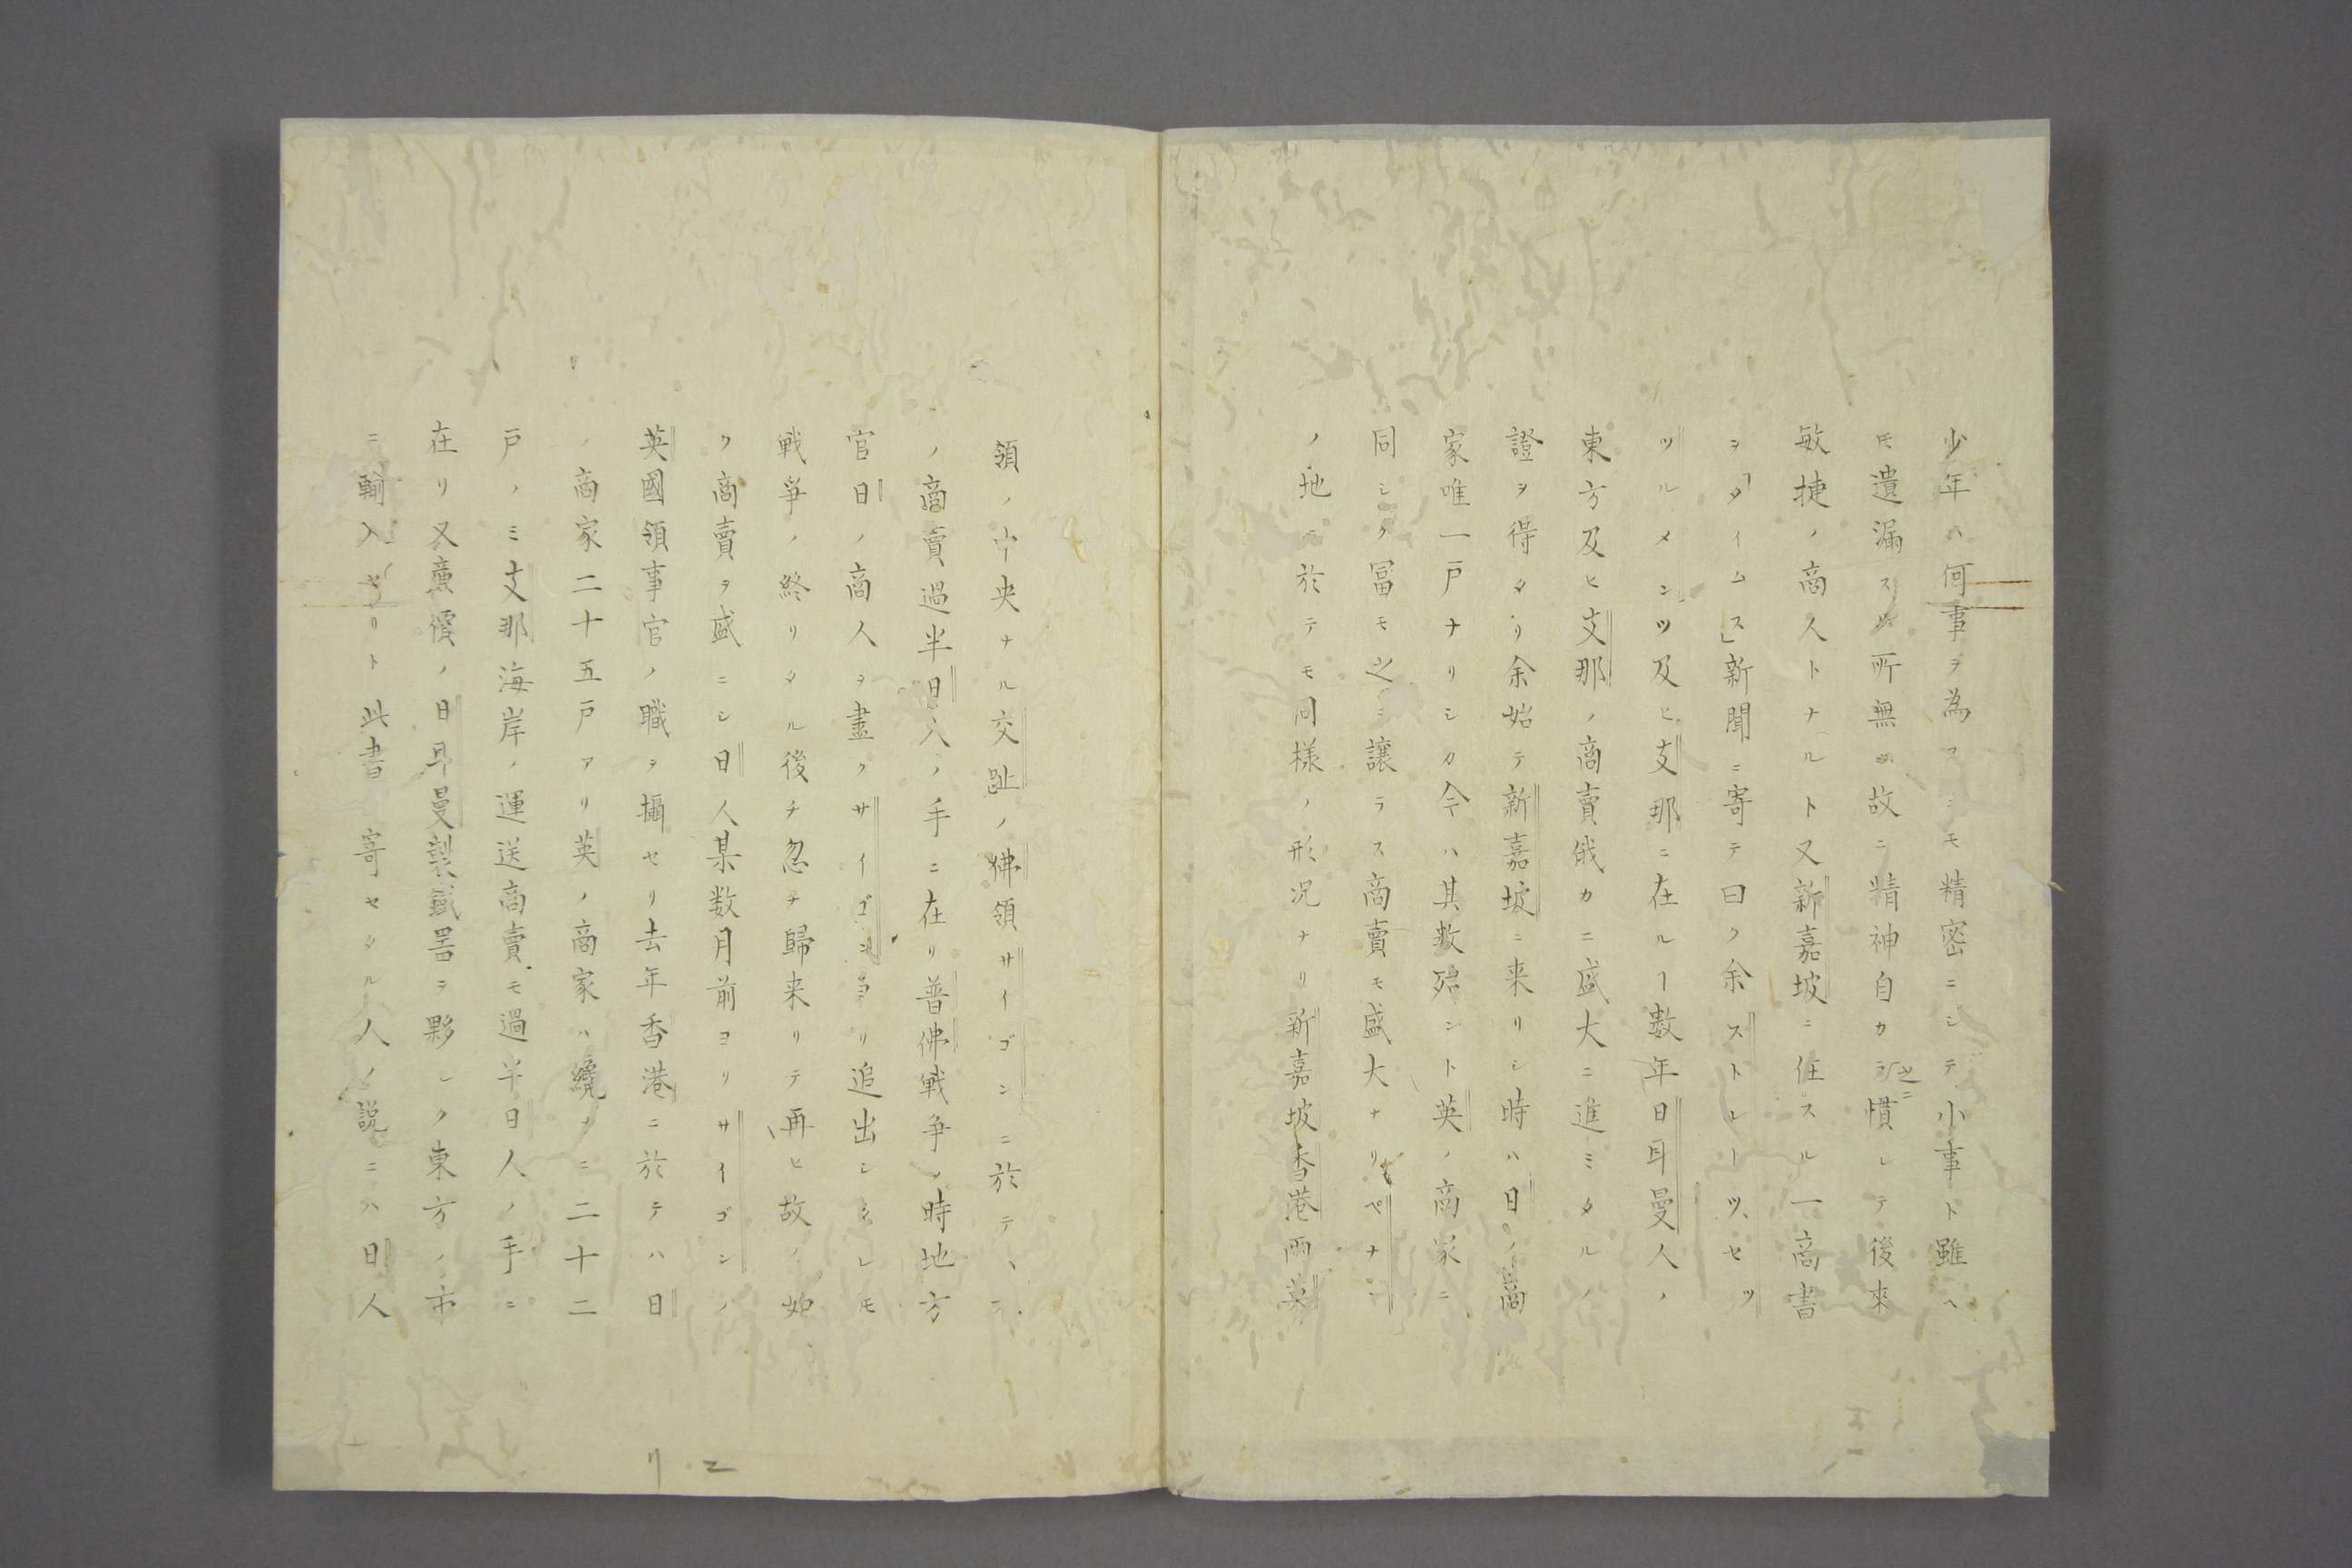 少年ハ何事ヲ為スニモ精密ニシテ小事ト雖ヘ
モ遺漏スル所無シ故ニ精神自カラ之ニ慣レテ後來
敏捷ノ商人トナルト又新嘉坡ニ住スル一商書
ヲ「タイムス」新聞ニ寄テ曰ク余ストレーツ、セツ
ツルメンツ及ヒ支那ニ在ルヿ數年日耳曼人ノ
東方及ヒ支那ノ商賣俄カニ盛大ニ進ミタルノ
證ヲ得タリ余始テ新嘉坡ニ来リシ時ハ日ノ商
家唯一戸ナリシカ今ハ其数殆ント英ノ商家ニ
同シク冨モ之ニ譲ラス商賣モ盛大ナリペナン
ノ地ニ於テモ同様ノ形况ナリ新嘉坡香港両英
領ノ中央ナル交趾ノ佛領サイゴンニ於テ、
ノ商賣過半日人ノ手ニ在リ普佛戦争ノ時地方
官日ノ商人ヲ盡クサイゴンヨリ追出シタレモ
戦爭ノ終リタル後チ忽チ歸来リテ再ヒ故ノ如
ク商賣ヲ盛ニシ日人某数月前ヨリサイゴンノ
英國領事官ノ職ヲ攝セリ去年香港ニ於テハ日
ノ商家二十五戸アリ英ノ商家ハ纔カニ二十二
戸ノミ支那海岸ノ運送商賣モ過半日人ノ手ニ
在リ又廉價ノ日耳曼製鐵噐ヲ夥シク東方ノ市
ニ輸入セリト此書寄セタル人ノ説ニハ日人
リニ